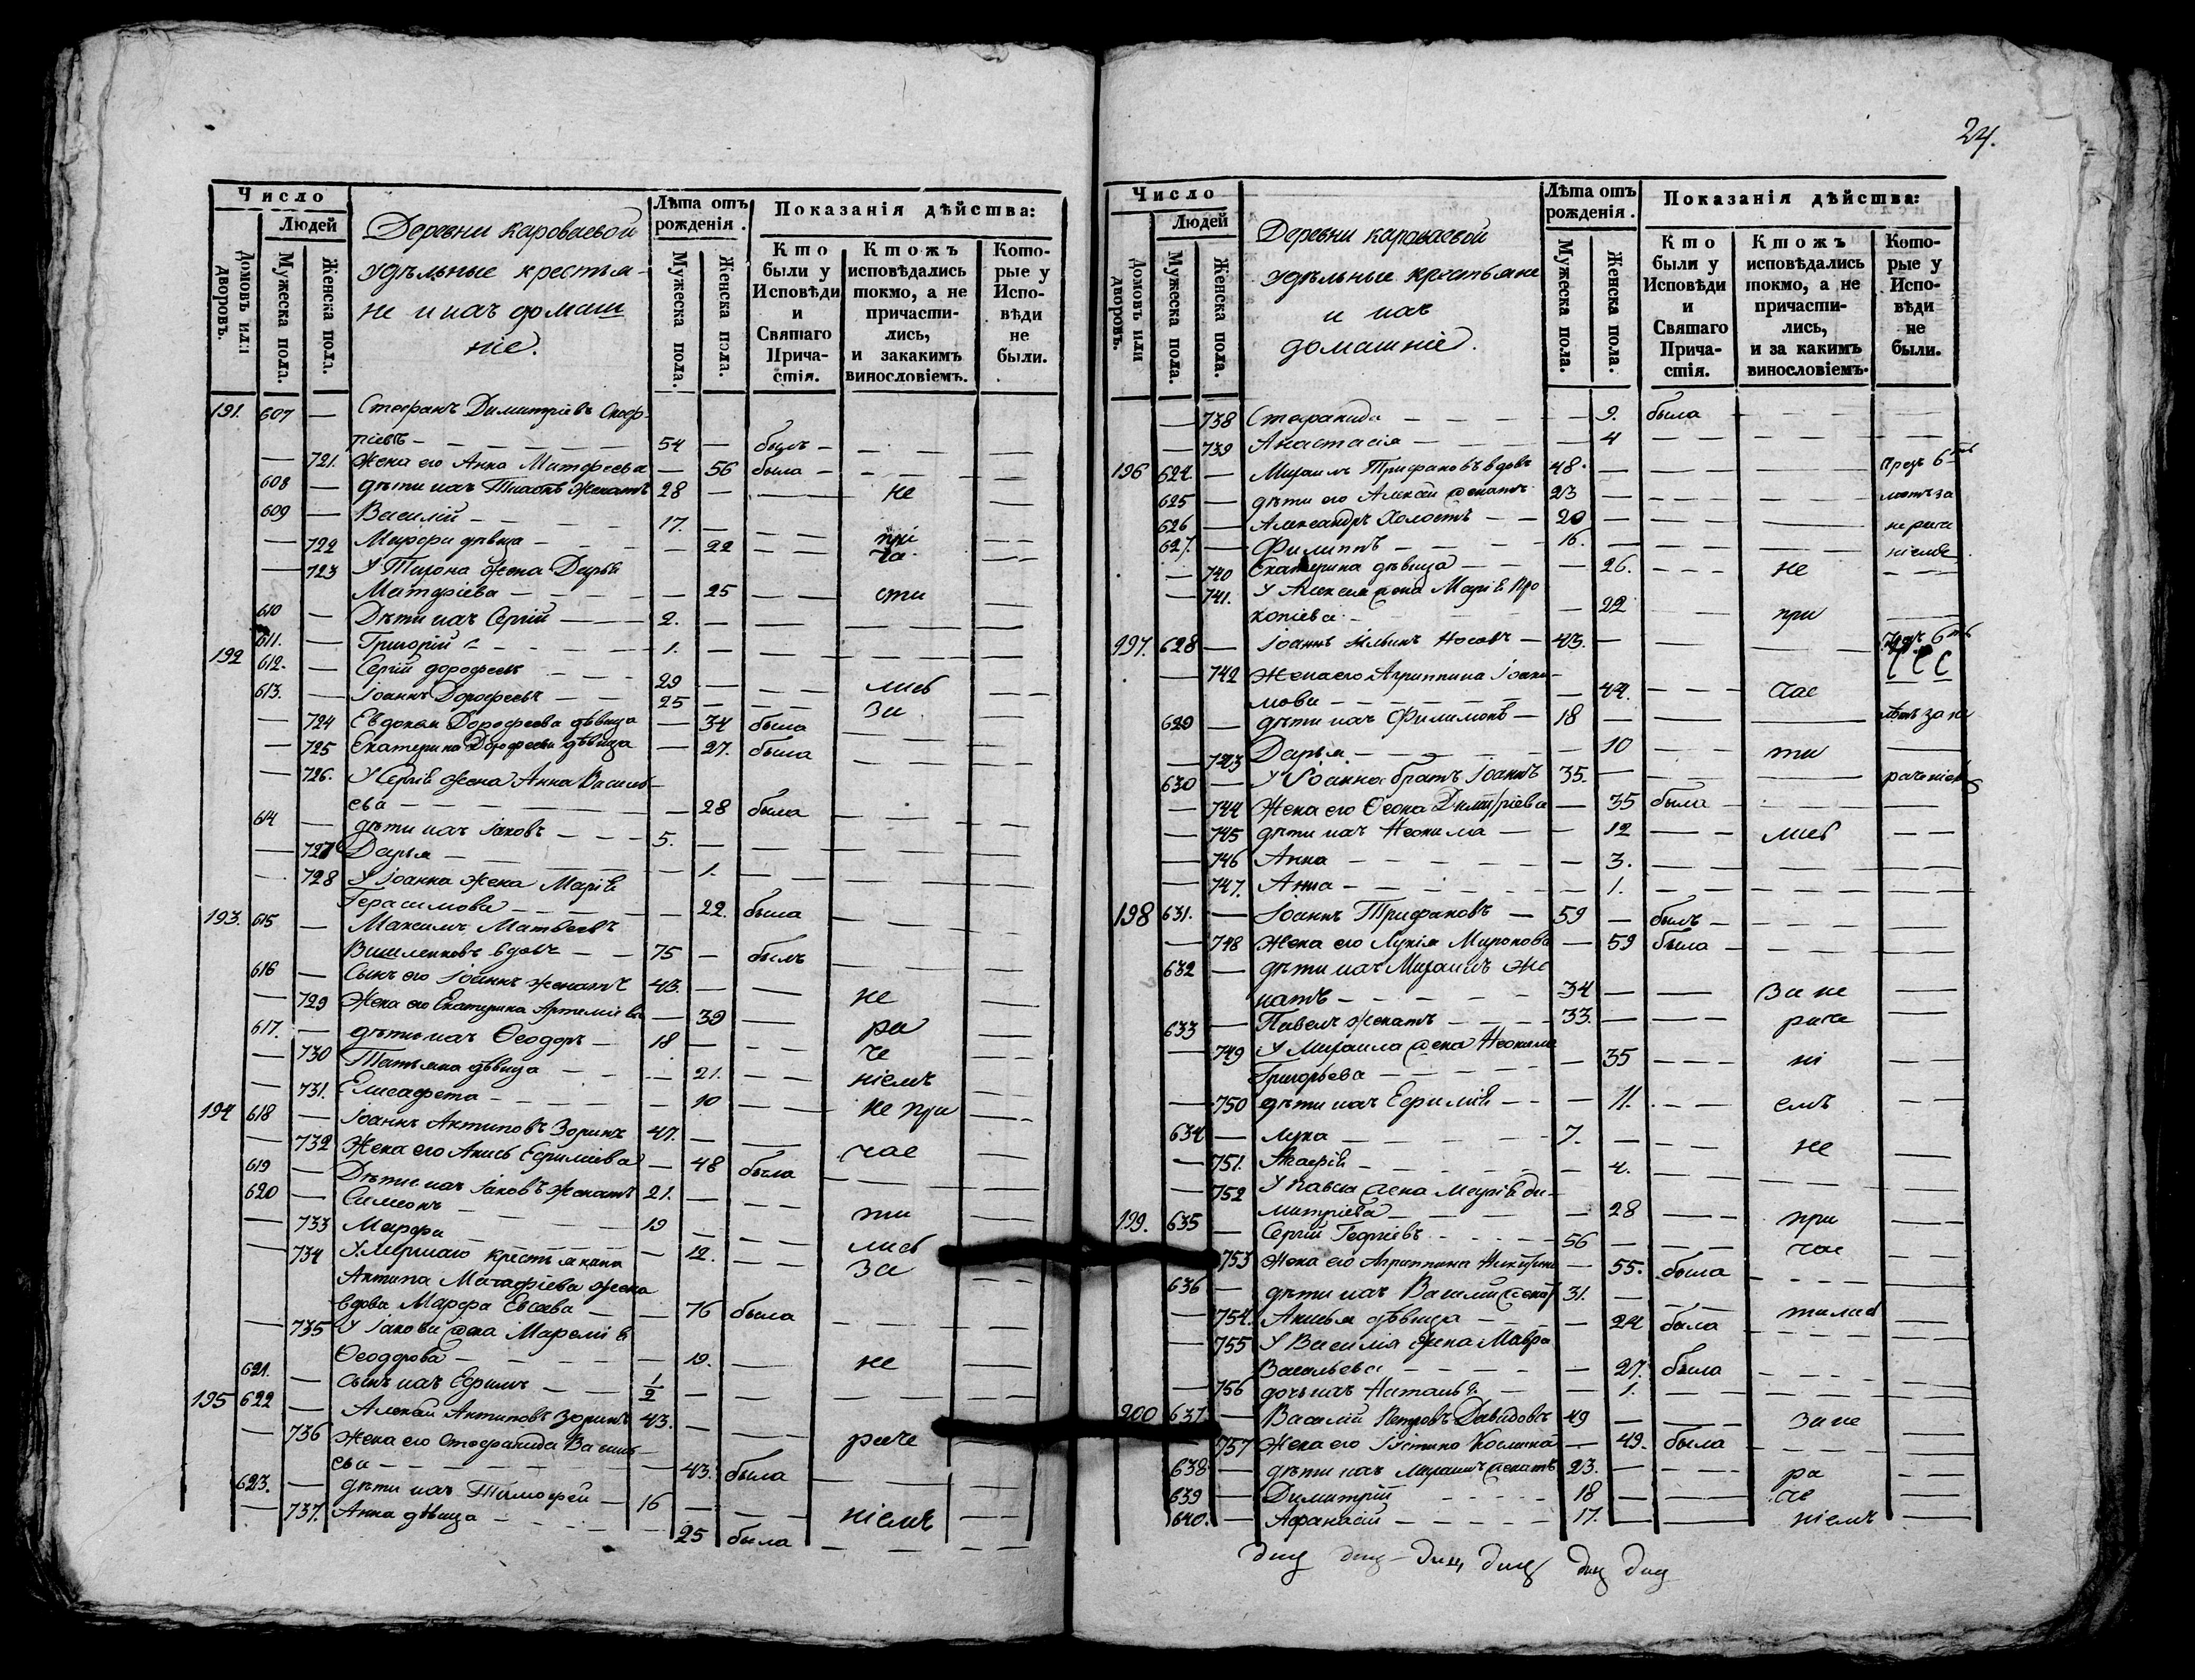 24.
Число
Людей
Домовъ или дворовъ.
Мужеска пола.
Женска пола.
Деревни караваевой
удѣльные крестья-
не и ихъ домаш
ніе.
Лѣта отъ рожденія.
Мужеска пола.
Женска пола.
Показанія дѣйства:
Кто были у Исповѣди и Святаго Прича-стія.
Ктожъ исповѣдались токмо, а не причасти-лись, и закакимъ винословіемъ.
Кото-рые у Испо-вѣди не были.
191. 607 — Стефанъ Димитріевъ
54 — былъ —
— 721. Жена его Анна Матфеева — 56 была —
608 — дѣти ихъ женатъ 28 — — не
609 — Василій — 17. —
— 722 Марфа дѣвица — 22 — при
ча
— 723 У жена Дарья
Матфіева — 25 — сти
610 — Дѣти ихъ Сергій — 2. —
611. — Григорій — 1. —
192 612. — Сергій дорофеевъ — 29 — лись
613. — Іоаннъ Дорофеевъ — 25 — за
— 724 Евдокія Дорофеева дѣвица — 34 была
— 725 Екатерина Дорофеева дѣвица — 27. была
— 726. У Сергія жена Анна Василь-
ева — 28 была
614 — дѣти ихъ Іаковъ — 5. —
— 727 Дарья — 1. —
— 728 У Іоанна жена Марія
Герасимова — 22. была
193. 615 — Максимъ Матвеевъ
вдовъ — 75 — былъ
616 — Сынъ его Іоаннъ женатъ 43. — не
— 729 Жена его Екатерина Артеміева — 39 — ра
617. — дѣти ихъ Ѳеодоръ — 18 — че
— 730 Татьяна дѣвица — 21. — ніемъ
— 731. Елисафета — 10 — не при
194 618 — Іоаннъ Антиповъ Зоринъ 47. —
— 732 Жена его Ефиміева — 48 была час
619 — Дѣти ихъ Іаковъ женатъ 21. —
620 — Симеонъ — 19 — ти
— 733 Марфа — 12. — лись
— 734 Умершаго крестьянина за
Антипа жена
вдова Марфа Евсева — 76 была
— 735 У Іакова жена
Ѳеодорова — 19. — не
621. — сынъ ихъ Ефимъ — 1/2 —
195 622 — Алексѣй Антиповъ Зоринъ 43. —
— 736 Жена его Стефанида Василь- раче
ева — 43. была
623. — дѣти ихъ Тимофей — 16 —
— 737. Анна дѣвица — 25 была ніемъ
Число
Людей
Домовъ или дворовъ.
Мужеска пола.
Женска пола.
Деревни караваевой
удѣльные крестьяне
и ихъ
домашніе.
Лѣта отъ рожденія.
Мужеска пола.
Женска пола.
Показанія дѣйства:
Кто были у Исповѣди и Святаго Прича-стія.
Ктожъ исповѣдались токмо, а не причасти-лись, и за какимъ винословіемъ.
Кото-рые у Испо-вѣди не были.
— 738 Стефанида — 9. была
— 739 Анастасія — 4 —
196 624. — Михаилъ Трифановъ вдовъ 48. —
625 — дѣти его Алексѣй женатъ 23 —
626 — Александръ Холостъ — 20 — нераче
627. — Филиппъ — 16. — ніемъ
— 740 Екатерина дѣвица — 26. — не
— 741. У Алексея жена Марія Про
копіева — 22 при
197. 628 — Іоаннъ Ильинъ Носовъ — 43. —
— 742 Жена его Агриппина Іоаки-
мова — 44. — час
629 — дѣти ихъ Филимонъ — 18 —
— 743 Дарья — 10 — ти
630 — У Іоанна братъ Іоаннъ 35. — раченіемъ
— 744 Жена его Димитріева — 35 была
— 745 дѣти ихъ Неонила — 12 — лись
— 746 Анна — 3. —
— 747. Анна — 1. —
198 631. — Іоаннъ Трифановъ — 59 — былъ
— 748 жена его Лукія Миронова — 59 была
632 — дѣти ихъ Михаилъ же
натъ — 34 — за не
633 — Павелъ женатъ — 33. — раче
— 749 У Михаила жена Неонила
Григорьева — 35 — ні
— 750 дѣти ихъ Ефимія — 11. — емъ
634 — Лука — 7. — не
— 751. — 4.
— 752 У Павла жена Марія Ди-
митріева — 28 — при
199. 635 — Сергій Георгіевъ — 56 — час
— 753 Жена его Агриппина — 55. была
636 — дѣти ихъ Василій женатъ 31. — тилис
— 754. Аксинья дѣвица — 24 была
— 755 У Василія жена Мавра
Васильева — 27. была
— 756 дочь ихъ Наталья — 1. —
200 637 — Василій Петровъ Давидовъ 49 — за не
— 757 Жена его — 49. была
638 — дѣти ихъ Михаилъ женатъ 23. — ра
639 — Димитрій — 18 — че
640. — Афанасій — 17. — ніемъ